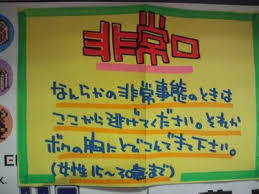 非常口
なんらかの非常事態のときは
ここから逃げてください。それか
ボクの胸にとびこんできて下さい。
(女性15~30歳まで)
E